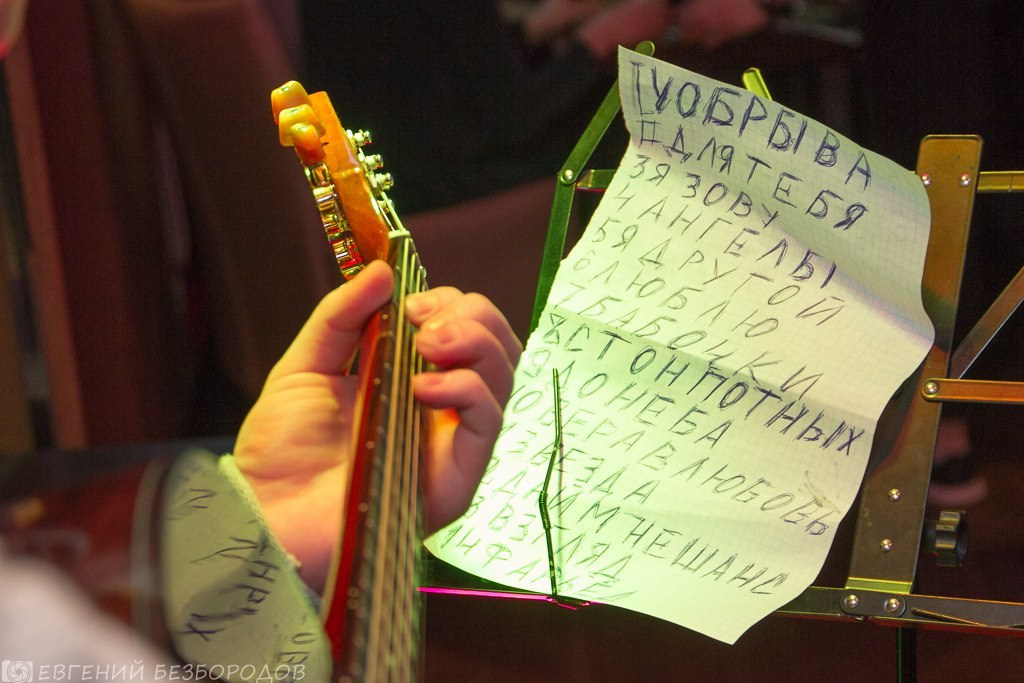 1 У ОБРЫВА
2 ДЛЯ ТЕБЯ
3 Я ЗОВУ
4 АНГЕЛЫ
5 Я ДРУГОЙ
6 ЛЮБЛЮ
7 БАБОЧКИ
8 СТО НПОТНЫХ
9 ДО НЕБА
10 ВЕРА В ЛЮБОВЬ
ЗВЕЗДА
ДАЙ МНЕ ШАНС
ВЗГЛЯД
ЕВГЕНИЙ БЕЗБОРОДОВ